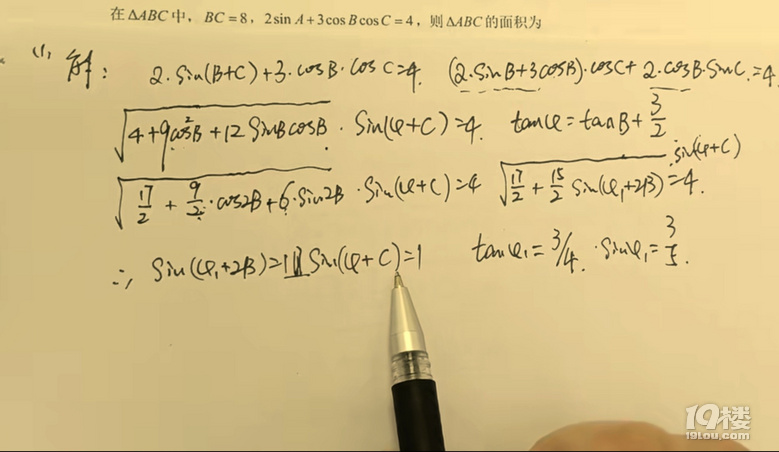 在△ABC中，BC=8，2sin A+3cos B cos C=4，则△ABC的面积为
(1)
解： 2·Sin(B+C)+3·cosB·cosC=4. (2·SinB+3cosB)·cosC+2·cosB·SinC=4
√(4+9cos²B+12SinBcosB)·Sin(φ+C)=4. tanφ=tanB+3/2
√(17/2+9/2·cos2B+6·Sin2B)·Sin(φ+C)=4 √(17/2+15/2 Sin(φ₁+2B))·sin(φ+C)=4.
∴ Sin(φ₁+2B)=1 Sin(φ+C)=1 tanφ₁=3/4. Sinφ₁=3/5.
19楼
19lou.com